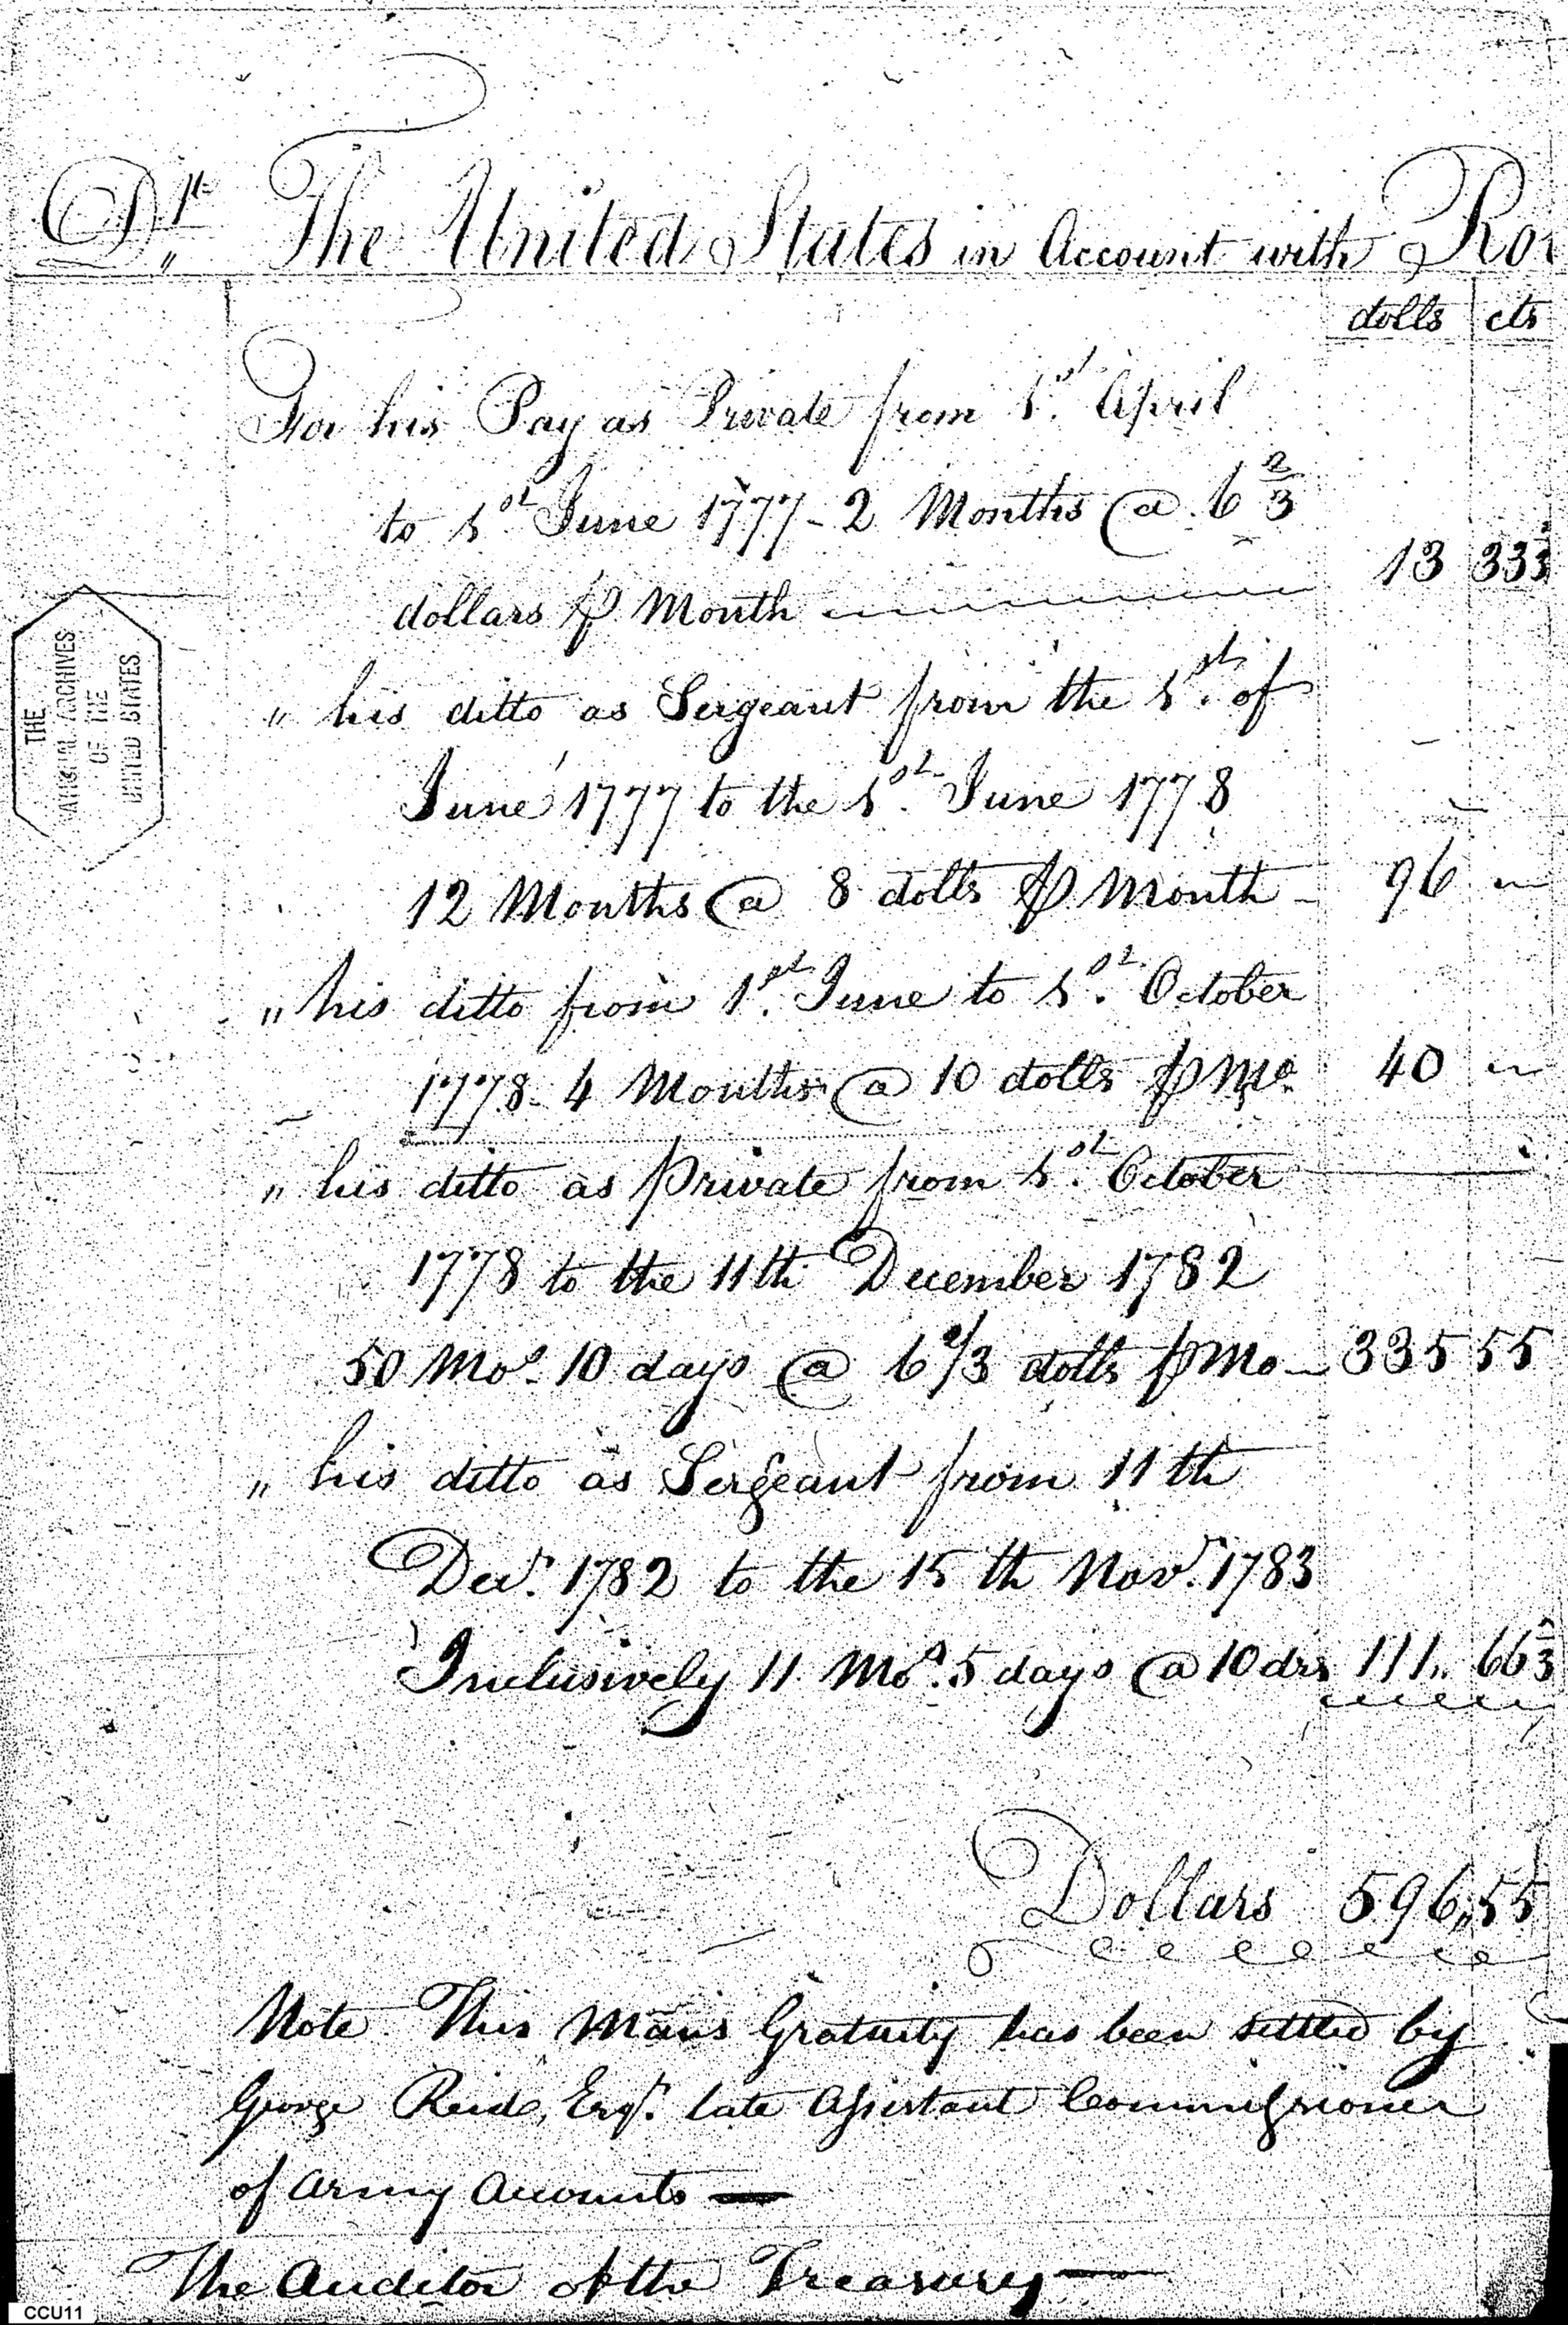 Dr. The United States in Account with Ro
dolls cts
For his Pay as Private from 1st. April
to 1st June 1777 - 2 Months @ 6 2/3
dollars ⅌ Month 13 33 1/3
" his ditto as Sergeant from the 1st. of
June 1777 to the 1st. June 1778
12 Months @ 8 dolls ⅌ Month - 96 "
" his ditto from 1st. June to 1st. October
1778 - 4 Months @ 10 dolls ⅌ Mo. 40 "
" his ditto as Private from 1st. October
1778 to the 11th December 1782
50 Mos. 10 days @ 6 2/3 dolls ⅌ Mo - 335 55
" his ditto as Sergeant from 11th
Decr. 1782 to the 15th Novr. 1783
Inclusively 11 Mos. 5 days @ 10 drs 111 " 66 2/3
Dollars 596 " 55
Note. This Mans Gratuity has been settled by
George Reid, Esqr. late Assistant Commissioner
of Army Accounts —
The Auditor of the Treasury —
THE
NATIONAL ARCHIVES
OF THE
UNITED STATES
CCU11